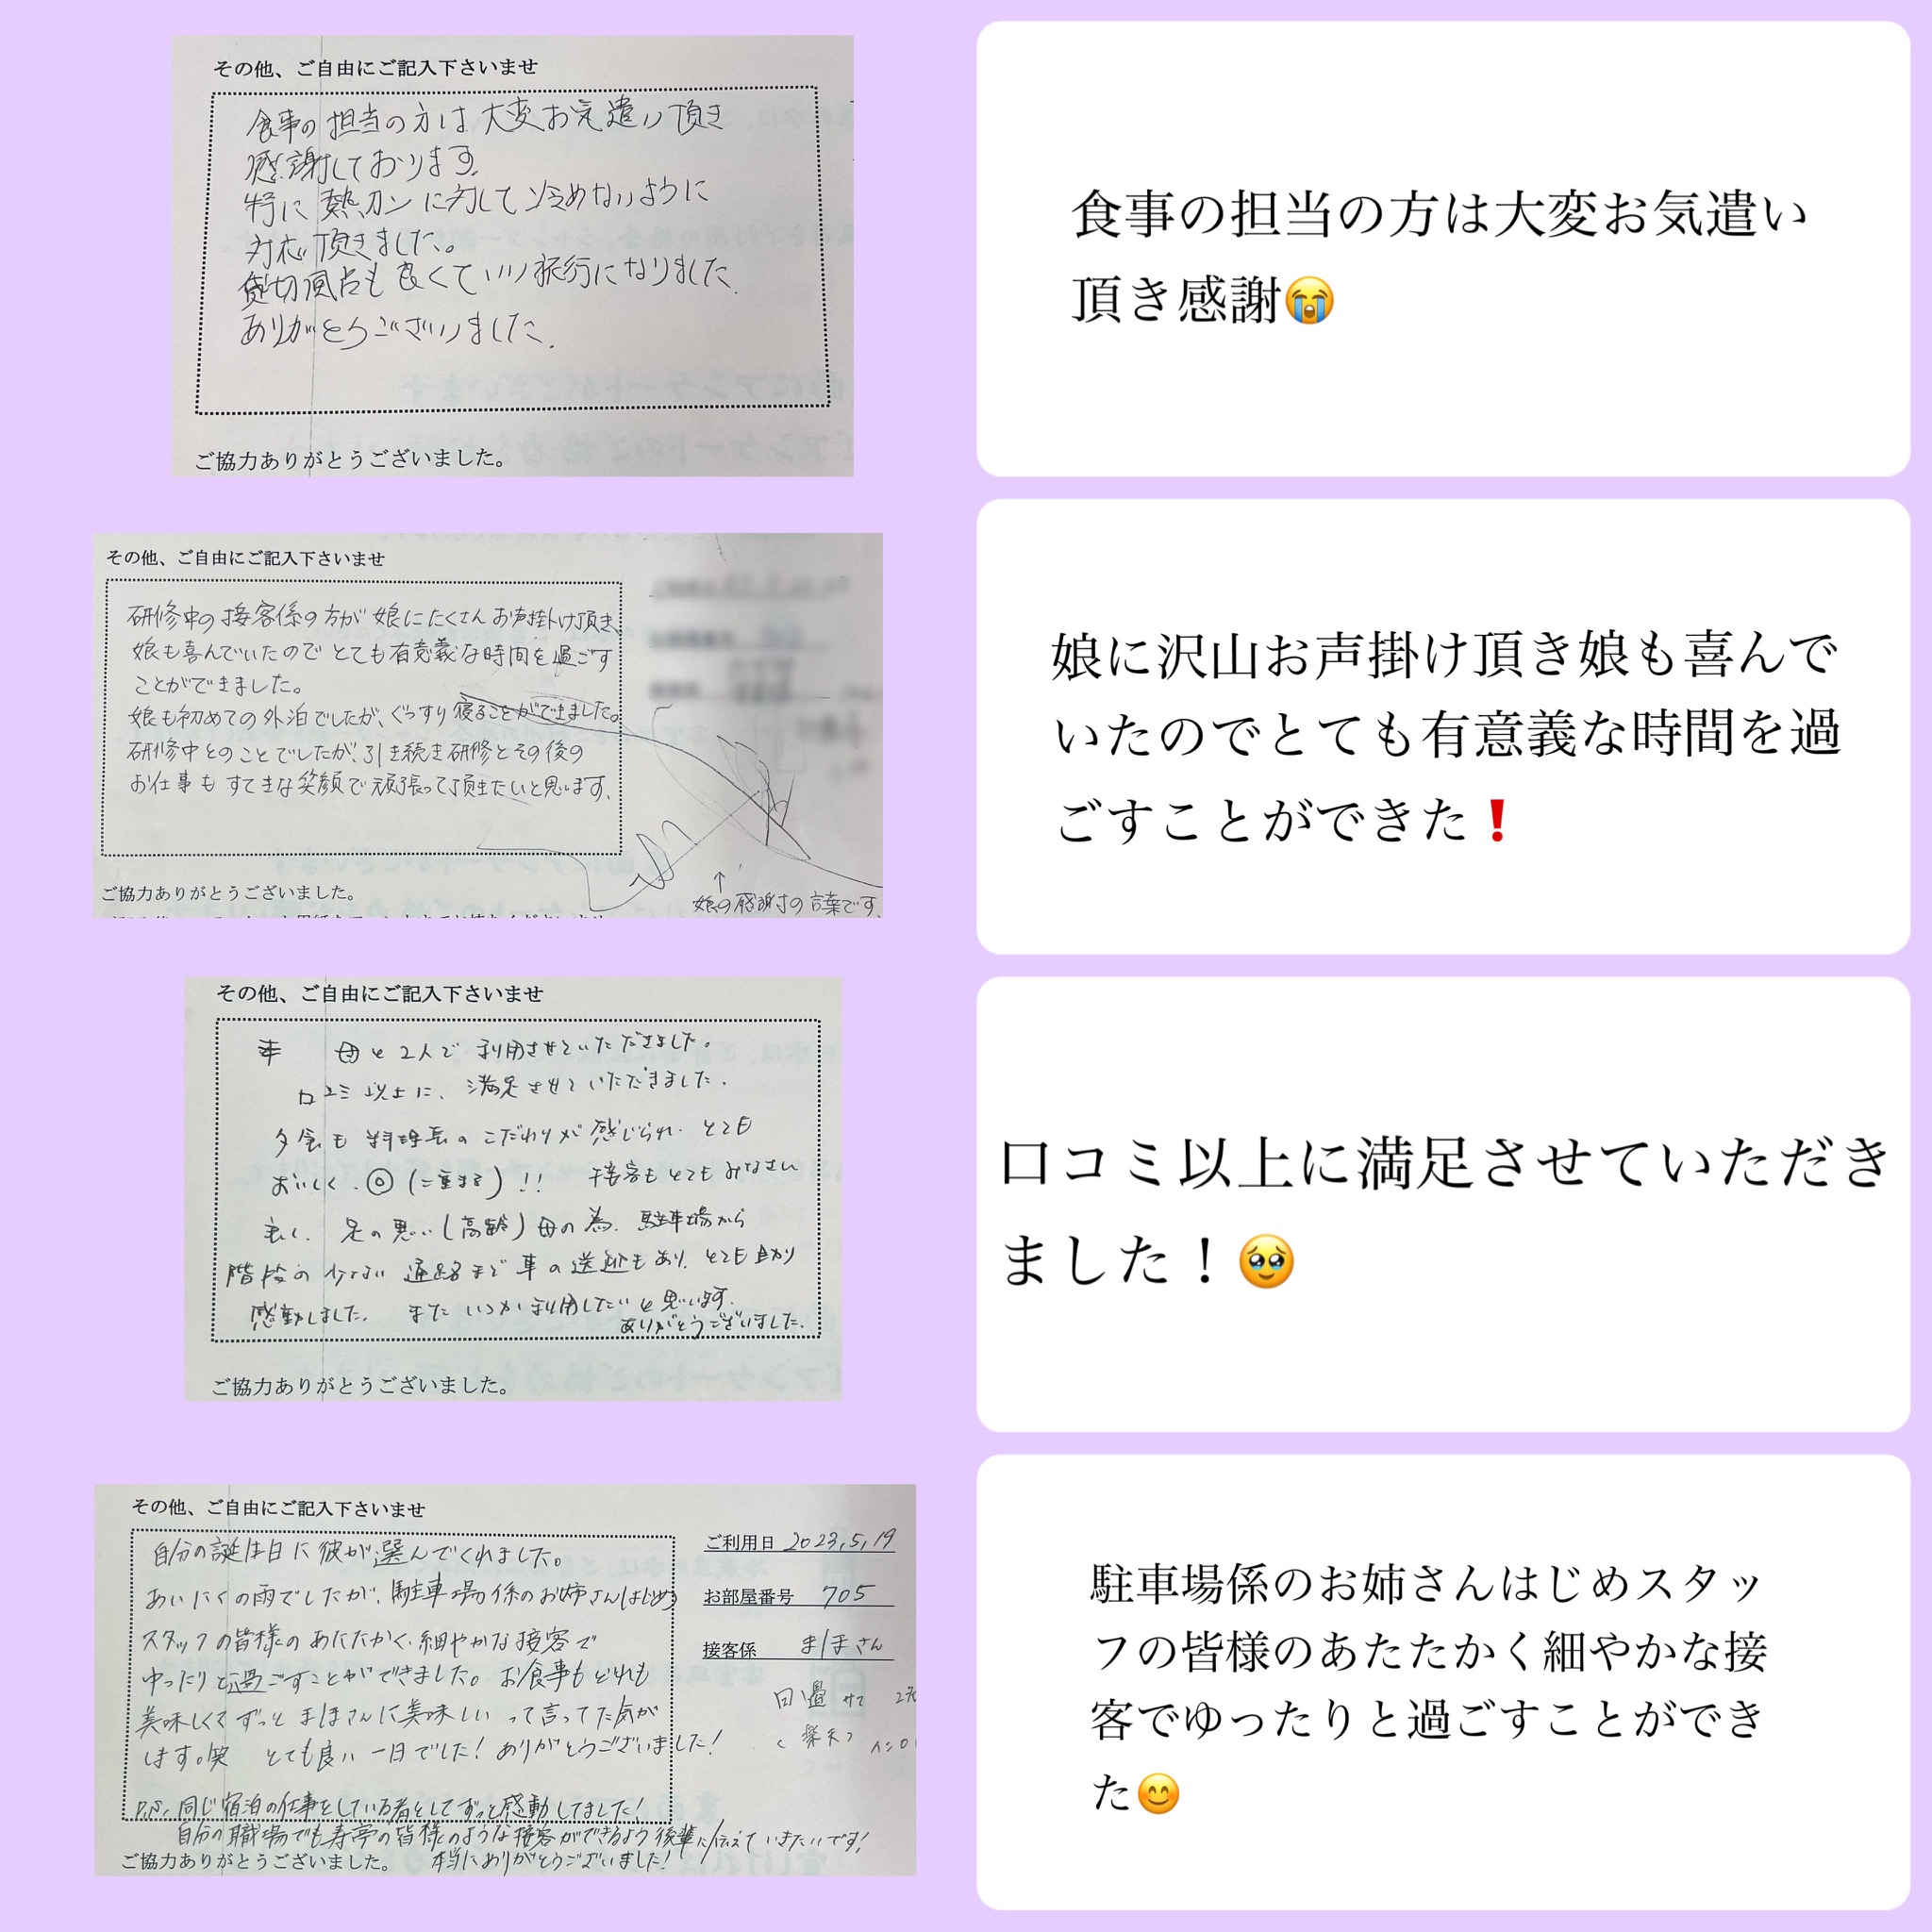 その他、ご自由にご記入下さいませ
食事の担当の方は大変お気遣い頂き
感謝しております。
特に熱カンに対して冷めないように
対応頂きました。
貸切風呂も良くていい旅行になりました。
ありがとうございました。
ご協力ありがとうございました。
食事の担当の方は大変お気遣い
頂き感謝😭
その他、ご自由にご記入下さいませ
研修中の接客係の方が娘にたくさんお声掛け頂き、
娘も喜んでいたのでとても有意義な時間を過ごす
ことができました。
娘も初めての外泊でしたが、ぐっすり寝ることができました。
研修中とのことでしたが、引き続き研修とその後の
お仕事もすてきな笑顔で頑張って頂きたいと思います。
↑
娘の感謝の言葉です
ご協力ありがとうございました。
娘に沢山お声掛け頂き娘も喜んで
いたのでとても有意義な時間を過
ごすことができた❗
その他、ご自由にご記入下さいませ
母と2人で利用させていただきました。
口コミ以上に、満足させていただきました。
夕食も料理長のこだわりが感じられ、とても
おいしく、◎(二重まる)!! 接客もとてもみなさん
良く、足の悪い(高齢)母の為、駐車場から
階段の少ない通路まで車の送迎もあり、とても助かり
感動しました。 またいつか利用したいと思います。
ありがとうございました。
ご協力ありがとうございました。
口コミ以上に満足させていただき
ました!🥹
その他、ご自由にご記入下さいませ
自分の誕生日に彼が選んでくれました。
あいにくの雨でしたが、駐車場係のお姉さんはじめ
スタッフの皆様のあたたかく、細やかな接客で
ゆったりと過ごすことができました。お食事もどれも
美味しくてずっとまほさんに美味しいって言ってた気が
します。笑 とても良い一日でした!ありがとうございました!
P.S. 同じ宿泊の仕事をしている者としてずっと感動してました!
自分の職場でも寿亭の皆様のような接客ができるよう後輩に伝えていきたいです!
本当にありがとうございました!
ご協力ありがとうございました。
ご利用日 2023.5.19
お部屋番号 705
接客係 まほさん
駐車場係のお姉さんはじめスタッ
フの皆様のあたたかく細やかな接
客でゆったりと過ごすことができ
た😊